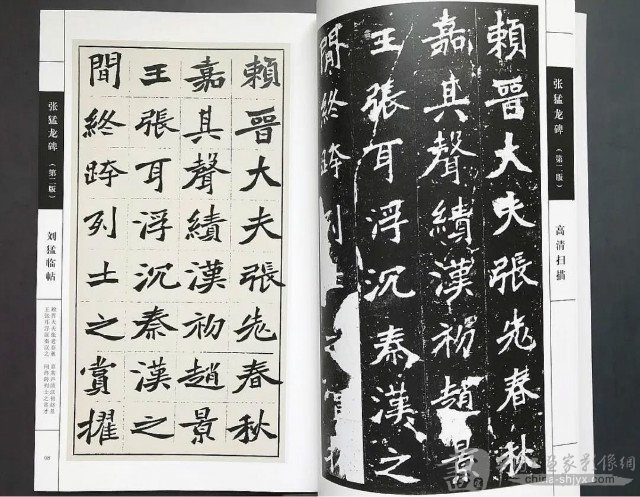 张猛龙碑(第二版)
刘猛临帖
08
賴晉大夫張老春秋
嘉其聲績漢初趙景
王張耳浮沉秦漢之
間終跨列土之賞擢
賴晉大夫張老春秋
嘉其聲績漢初趙景
王張耳浮沉秦漢之
間終跨列
张猛龙碑(第二版)
高清扫描
家影像網
china-shjyx.com